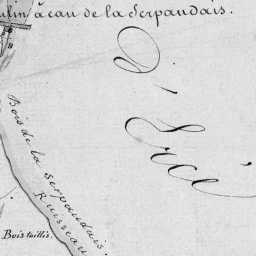 ulin à eau de la Serpaudais.
Bois de la serpaudais.
Ruisseau
Bois taillis.